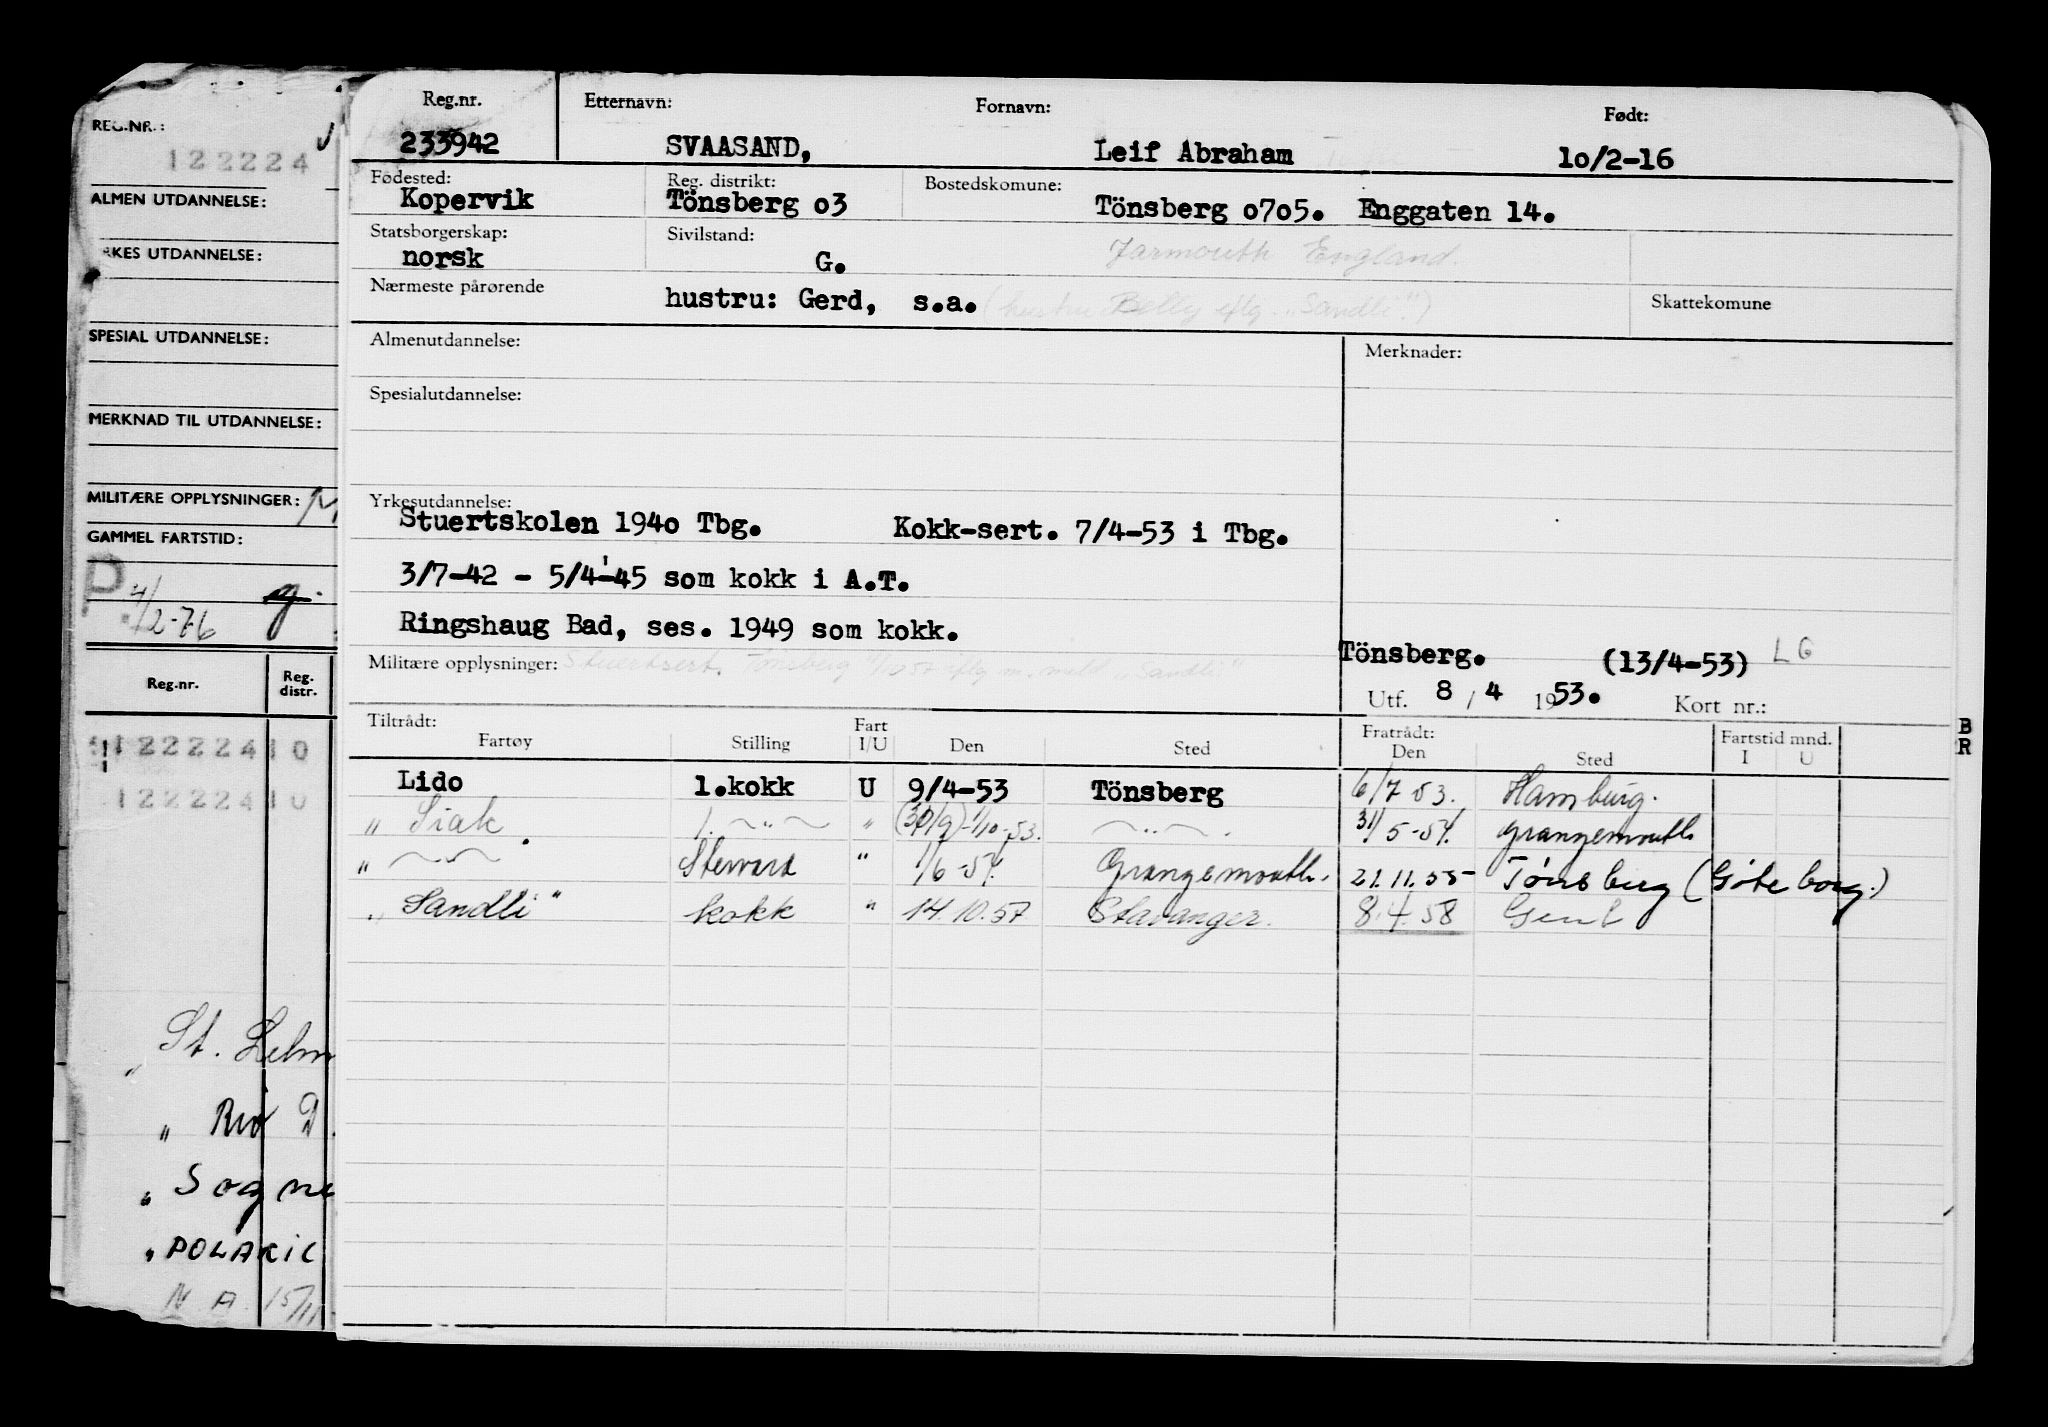 REG.NR.:
122224
ALMEN UTDANNELSE:
RKES UTDANNELSE:
SPESIAL UTDANNELSE:
MERKNAD TIL UTDANNELSE:
MILITÆRE OPPLYSNINGER:
GAMMEL FARTSTID:
P 4/2-76 g.
Reg.nr. Reg. distr.
122224 10
122224 10
„ St. Helm
„ Rio D
„ Sogne
„ POLARIC
N. A. 15/11
Reg.nr. Etternavn: Fornavn: Født:
233942 SVAASAND, Leif Abraham 10/2-16
Fødested: Reg. distrikt: Bostedskomune:
Kopervik Tönsberg o3 Tönsberg o7o5. Enggaten 14.
Statsborgerskap: Sivilstand: Yarmouth England.
norsk G.
Nærmeste pårørende hustru: Gerd, s.a. (hustru Betty iflg. „Sandli") Skattekomune
Almenutdannelse: Merknader:
Spesialutdannelse:
Yrkesutdannelse:
Stuertskolen 194o Tbg. Kokk-sert. 7/4-53 i Tbg.
3/7-42 - 5/4-45 som kokk i A.T.
Ringshaug Bad, ses. 1949 som kokk.
Militære opplysninger: Stuertsert. Tønsberg iflg m. meld „Sandli"
Tönsberg. (13/4-53) LG
Utf. 8 / 4 1953. Kort nr.:
Tiltrådt: Fratrådt: Fartstid mnd.
Fartøy Stilling Fart I/U Den Sted Den Sted I U
B R
Lido 1.kokk U 9/4-53 Tönsberg 6/7 53. Hamburg.
„ Siak 1. —„— „ (30/9)-1/10-53. —„— 31/5-54. Grangemouth
„ —„— Steward " 1/6-54. Grangemouth. 21.11.55 Tønsberg (Göteborg.)
„ Sandli" kokk " 14.10.57 Stavanger. 8.4.58 Gent